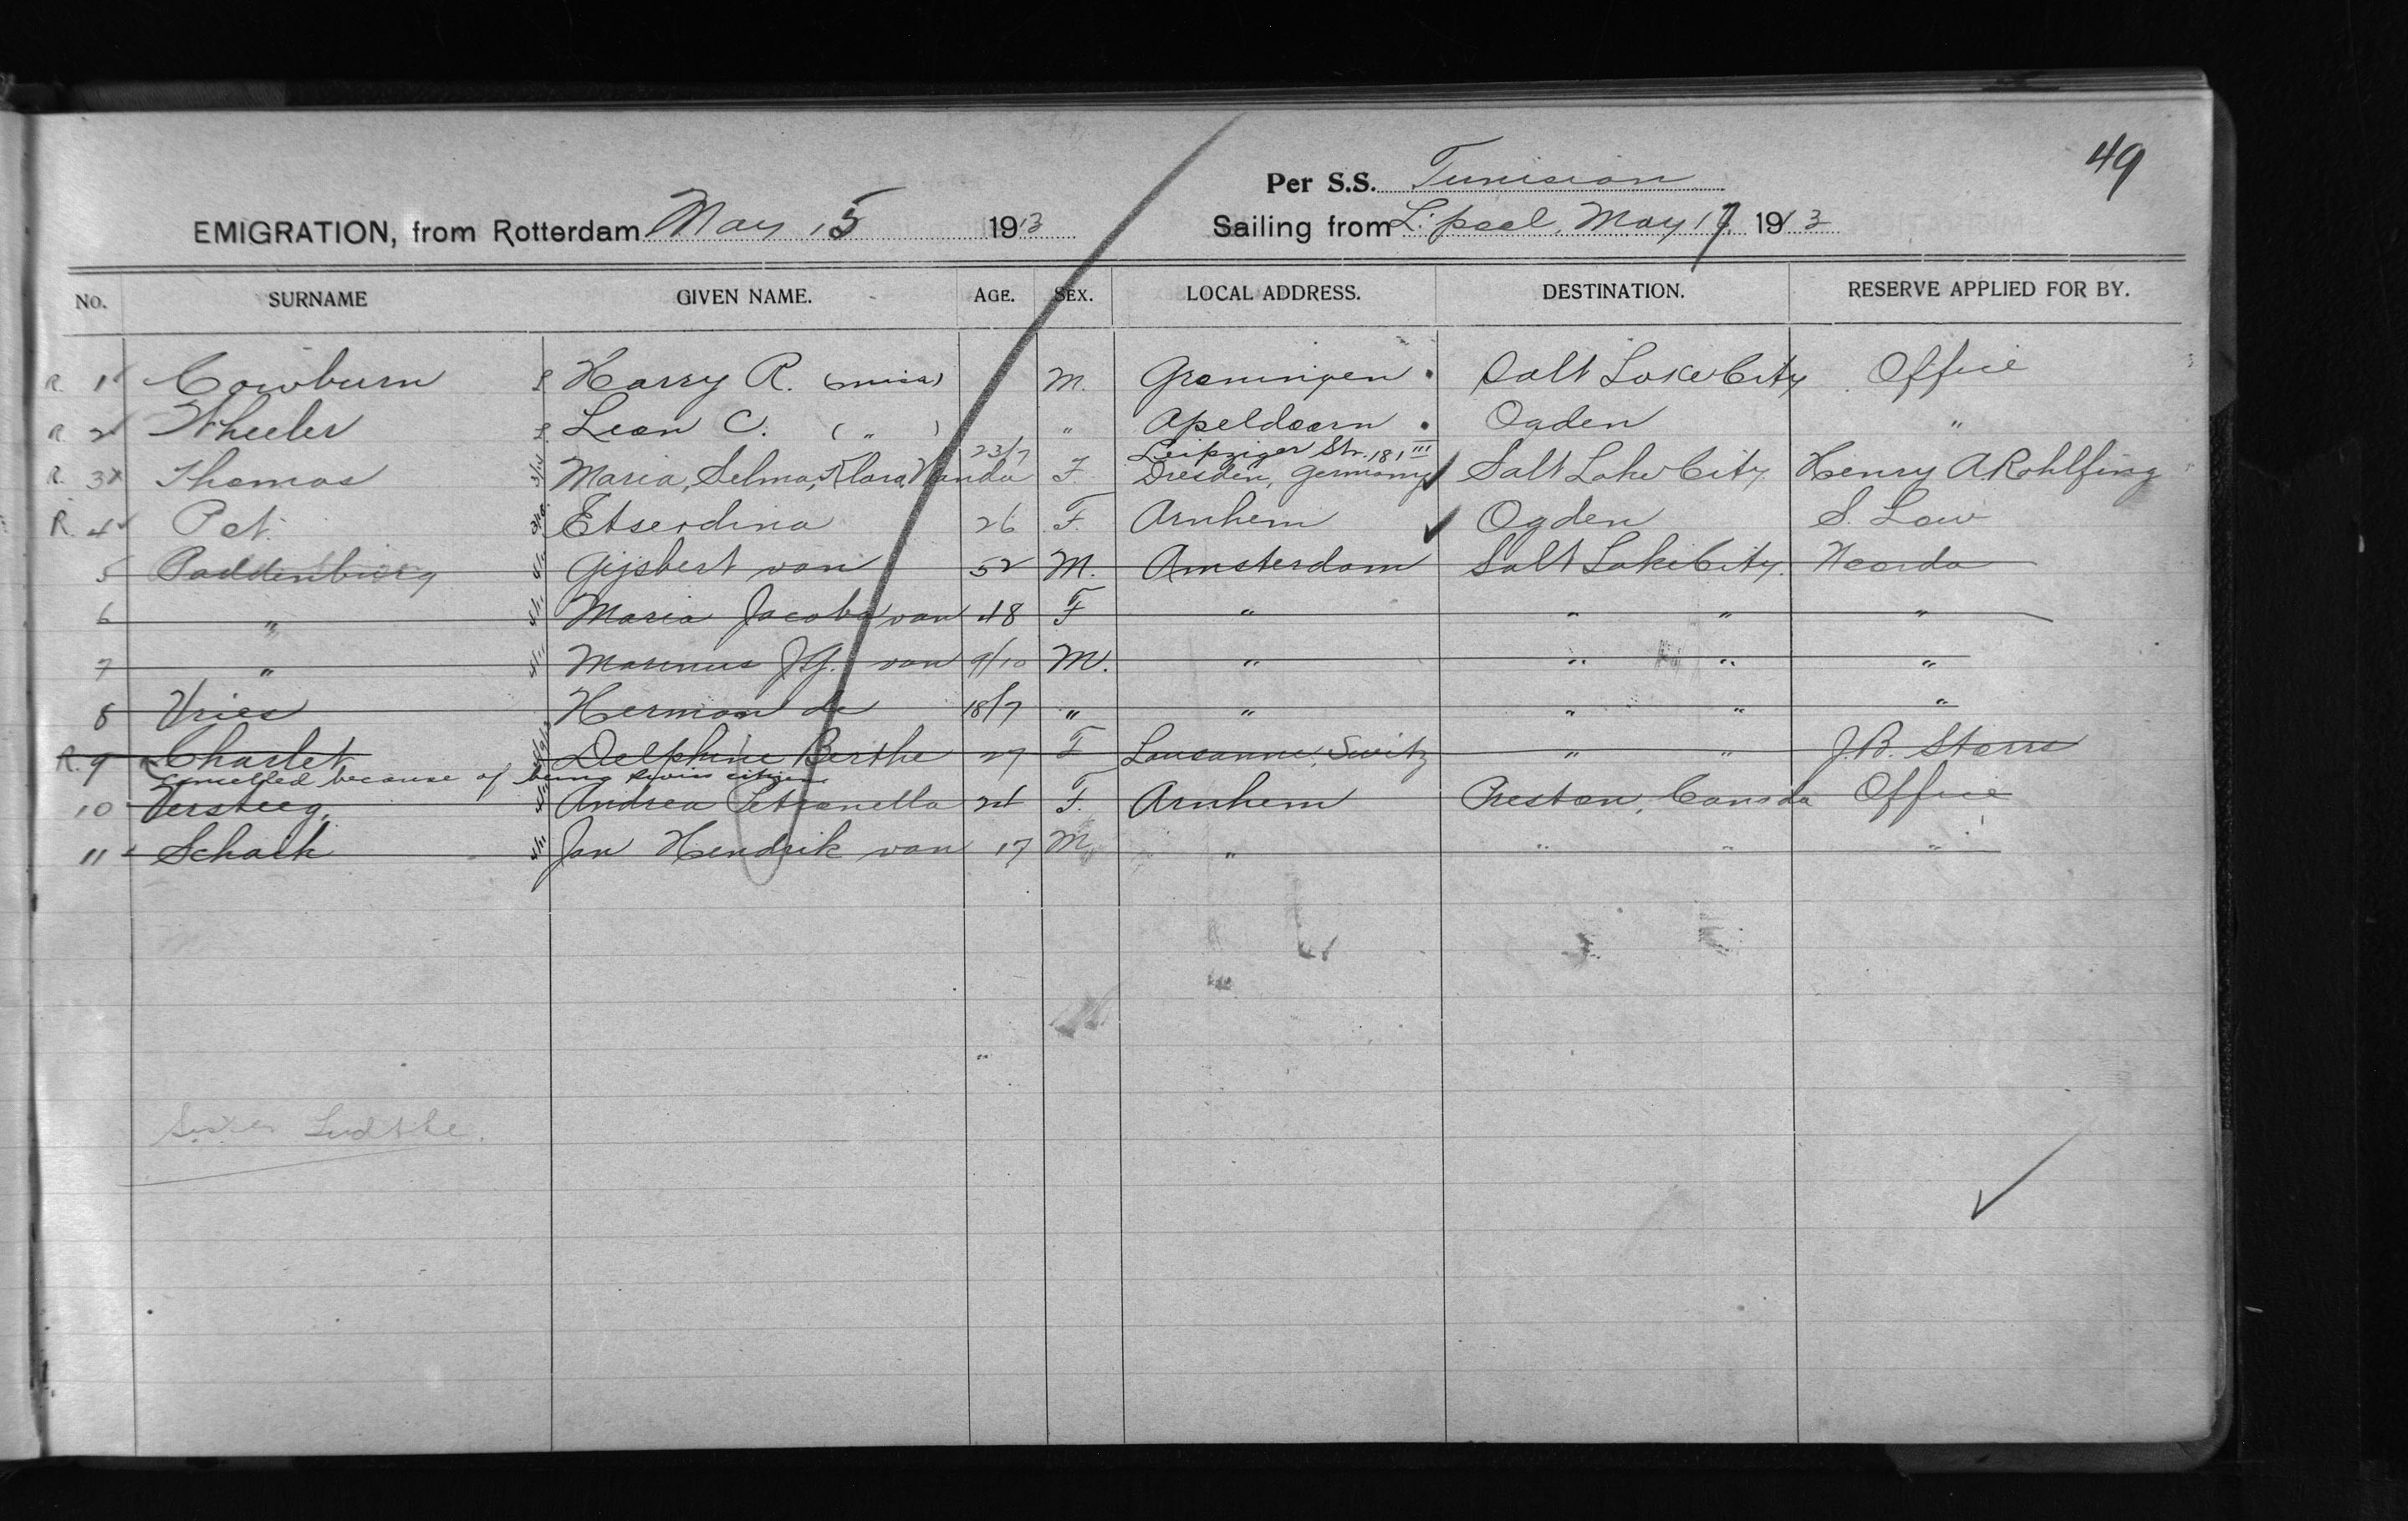 49
Per S.S. Tunisian
EMIGRATION, from Rotterdam May 15 1913 Sailing from L'pool, May 17, 1913
No. SURNAME GIVEN NAME. AGE. SEX. LOCAL ADDRESS. DESTINATION. RESERVE APPLIED FOR BY.
R. 1 Cowburn Harry R. (miss) M. Groningen Salt Lake City Office
R. 2 Wheeler Leon C. ( " ) " Apeldoorn Ogden "
23/7 Leipziger Str. 181 III
R. 3 Thomas Maria, Selma, Klara, Wanda F. Dresden, Germany Salt Lake City Henry A. Rohlfing
R. 4 Pet. 26 F. Arnhem Ogden S. Low
5 Paddenburg Gijsbert van 52 M. Amsterdam Salt Lake City. Noorda
6 " Maria Jacoba van 48 F " " " "
7 " Marinus J.G. van 9/10 M. " " " "
8 Vries Herman de 18/7 " " " " "
R. 9 Charlet Delphine Berthe 27 F Lausanne, Switz " " J.B. Starrs
Cancelled because of being Swiss citizen
10 Versteeg, Andrea Petronella 24 F. Arnhem Preston, Canada Office
11 Schaik Jan Hendrik van 17 M " " " "
Sister